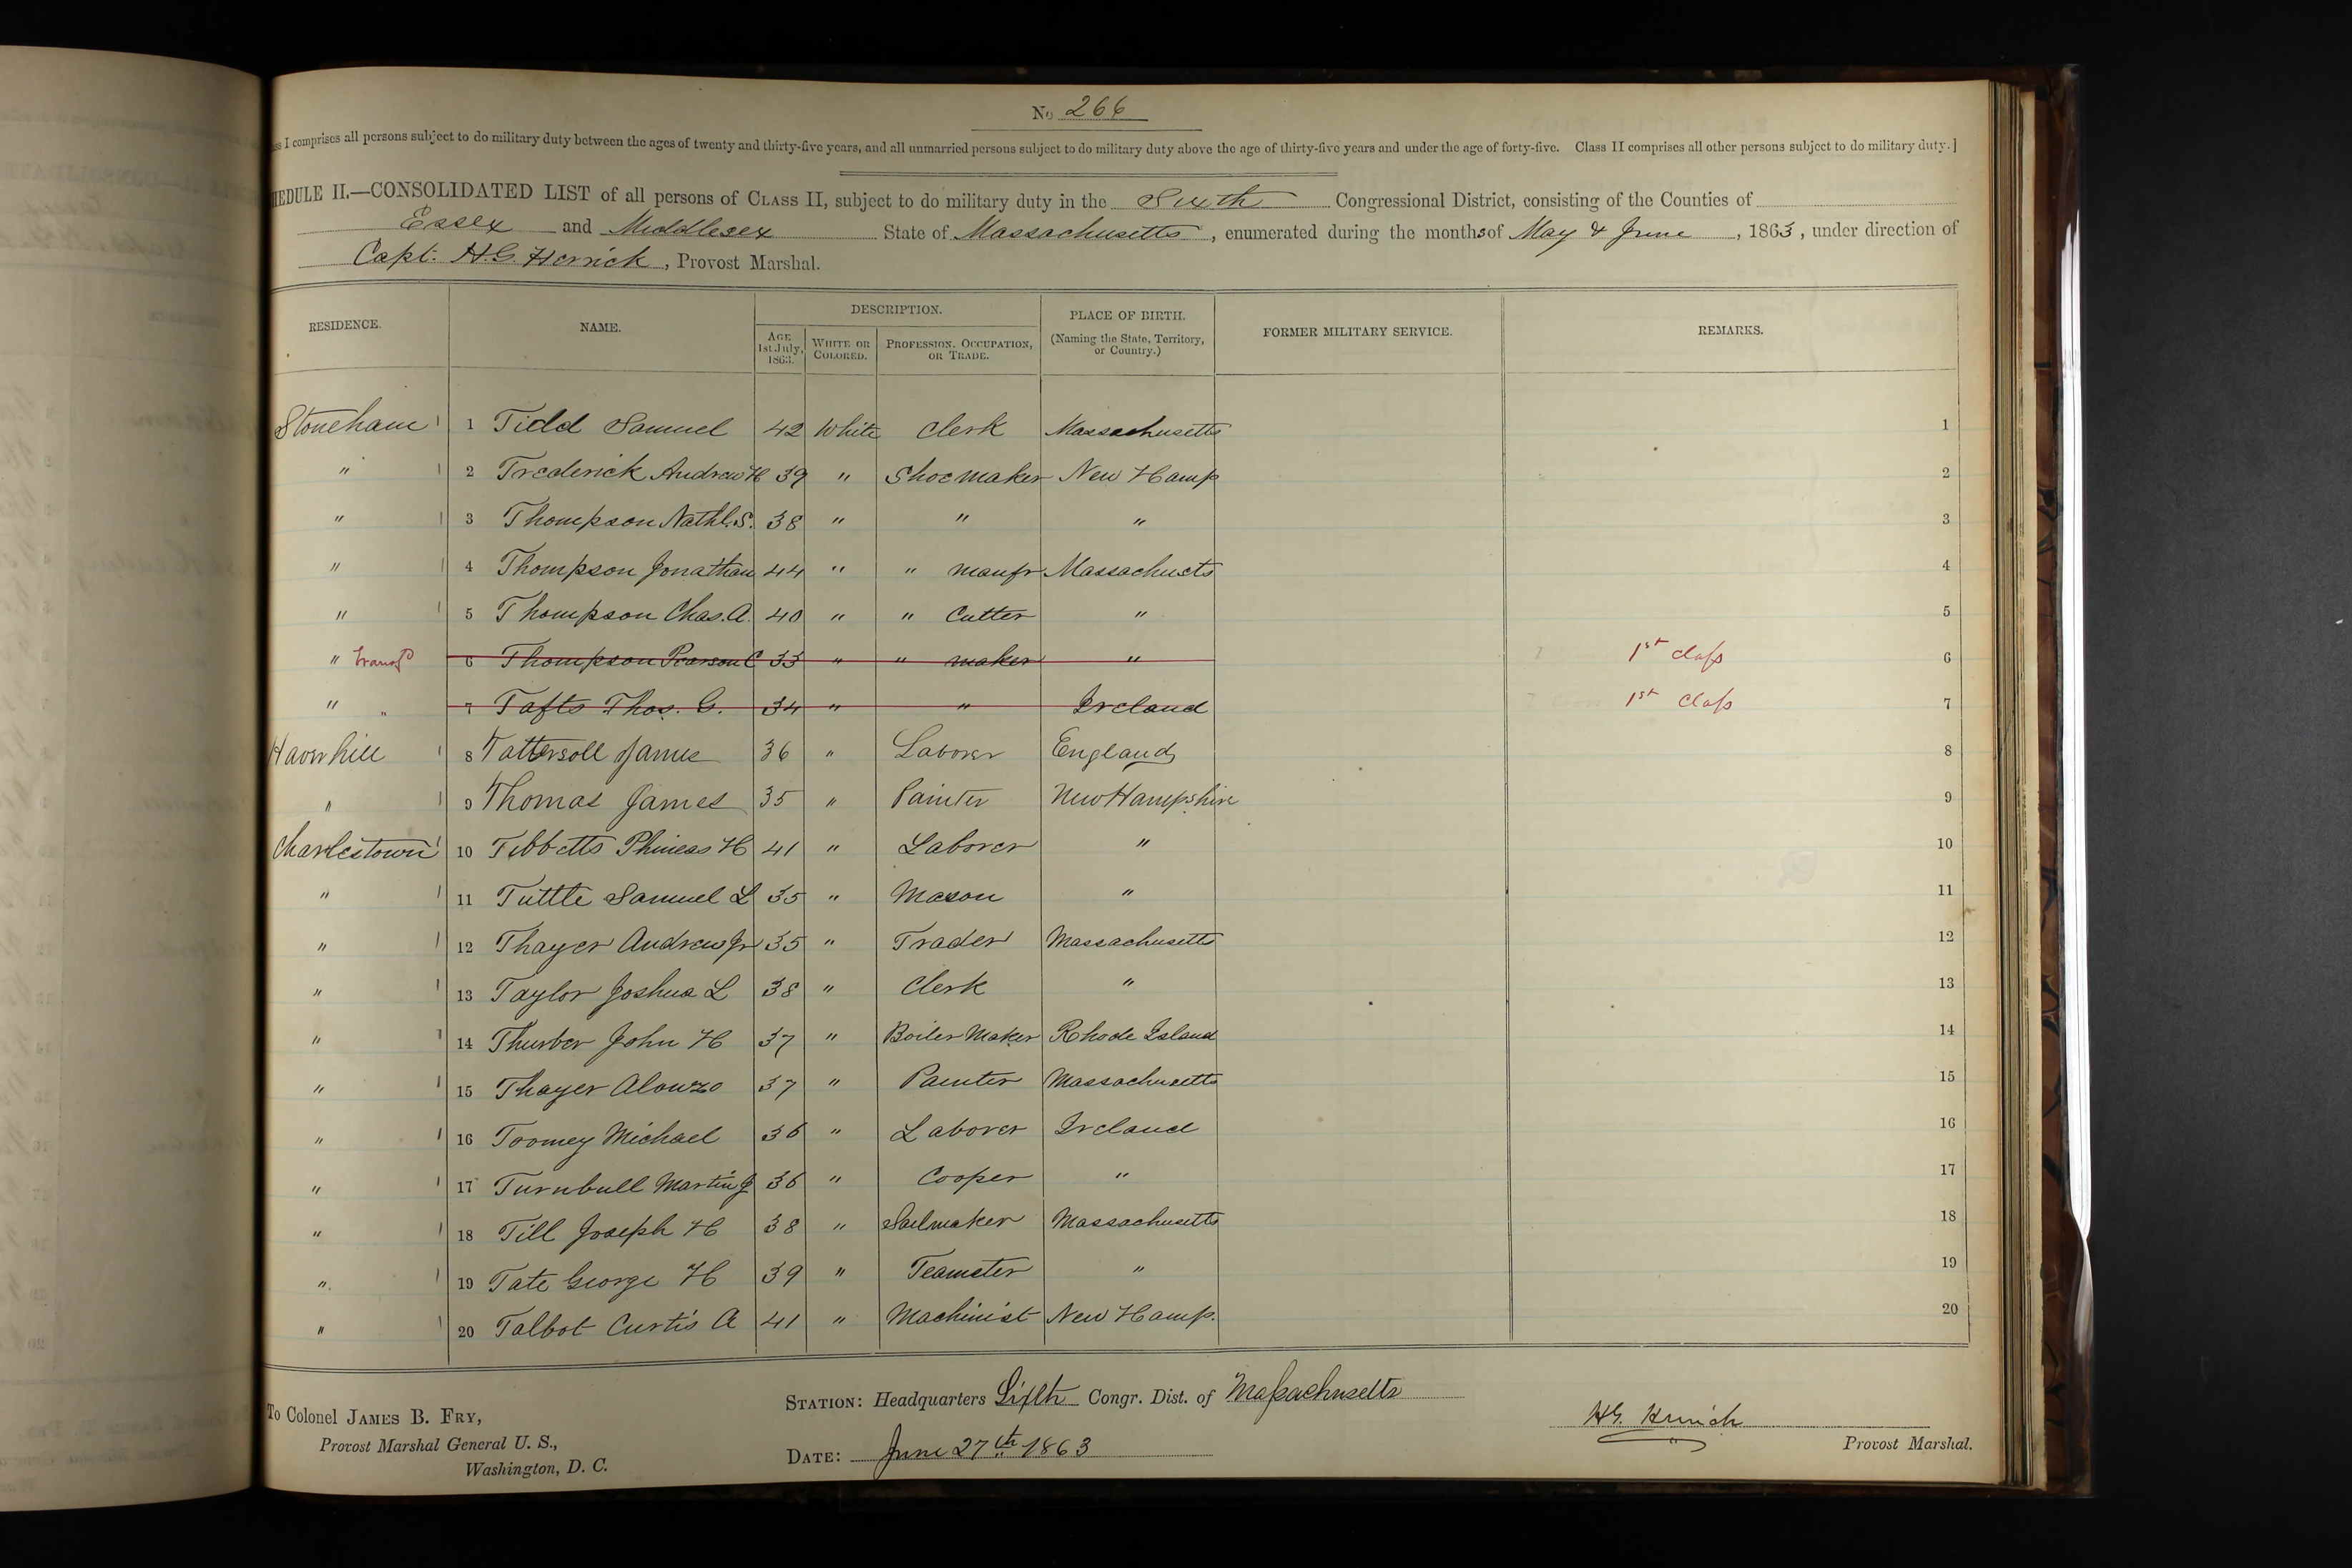 No 266
ss I comprises all persons subject to do military duty between the ages of twenty and thirty-five years, and all unmarried persons subject to do military duty above the age of thirty-five years and under the age of forty-five. Class II comprises all other persons subject to do military duty.]
HEDULE II.—CONSOLIDATED LIST of all persons of CLASS II, subject to do military duty in the Sixth Congressional District, consisting of the Counties of
Essex and Middlesex State of Massachusetts, enumerated during the months of May & June, 1863, under direction of
Capt. H.G. Herrick, Provost Marshal.
RESIDENCE. NAME. DESCRIPTION. PLACE OF BIRTH. (Naming the State, Territory, or Country.) FORMER MILITARY SERVICE. REMARKS.
AGE 1st July, 1863. WHITE OR COLORED. PROFESSION, OCCUPATION, OR TRADE.
Stoneham 1 Tidd Samuel 42 White Clerk Massachusetts 1
" 2 Trederick Andrew H 39 " Shoemaker New Hamp 2
" 3 Thompson Nathl. S. 38 " " " 3
" 4 Thompson Jonathan 44 " " manfr Massachusets 4
" 5 Thompson Chas. A. 40 " " Cutter " 5
" transfd 6 Thompson Pearson C 33 " " maker " 1st class 6
" " 7 Tafts Thos. G. 34 " " Ireland 1st class 7
Haverhill 8 Tattersoll James 36 " Laborer England 8
" 9 Thomas James 35 " Painter New Hampshire 9
Charlestown 10 Tibbetts Phineas H 41 " Laborer " 10
" 11 Tuttle Samuel L 35 " Mason " 11
" 12 Thayer Andrew Jr 35 " Trader Massachusetts 12
" 13 Taylor Joshua L 38 " Clerk " 13
" 14 Thurber John H 37 " Boiler Maker Rhode Island 14
" 15 Thayer Alonzo 37 " Painter Massachusetts 15
" 16 Toomey Michael 36 " Laborer Ireland 16
" 17 Turnbull Martin J 36 " Cooper " 17
" 18 Till Joseph H 38 " Sailmaker Massachusetts 18
" 19 Tate George H 39 " Teamster " 19
" 20 Talbot Curtis A 41 " Machinist New Hamp. 20
To Colonel JAMES B. FRY,
Provost Marshal General U. S.,
Washington, D. C.
STATION: Headquarters Sixth Congr. Dist. of Massachusetts
DATE: June 27th 1863
H.G. Herrick
Provost Marshal.